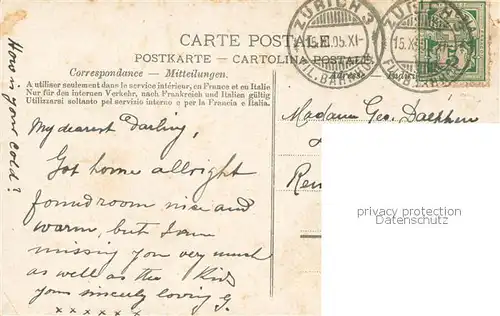 CARTE POSTALE.
POSTKARTE - CARTOLINA POSTALE.
Correspondance — Mitteilungen.
Adresse
A utiliser seulement dans le service intérieur, en France et en Italie
Nur für den internen Verkehr, nach Frankreich und Italien gültig
Utilizzarsi soltanto pel servizio interno e per la Francia e Italia.
ZÜRICH 3
15.X 05.XI-
FIL.BAHNHOF
How is your cold?
My dearest Darling,
Got home allright
found room nice and
warm, but I am
missing you very much
as well as the Kid
yours sincerely loving G.
x x x x x x
Madame Geo.
Ren
privacy protection
Datenschutz